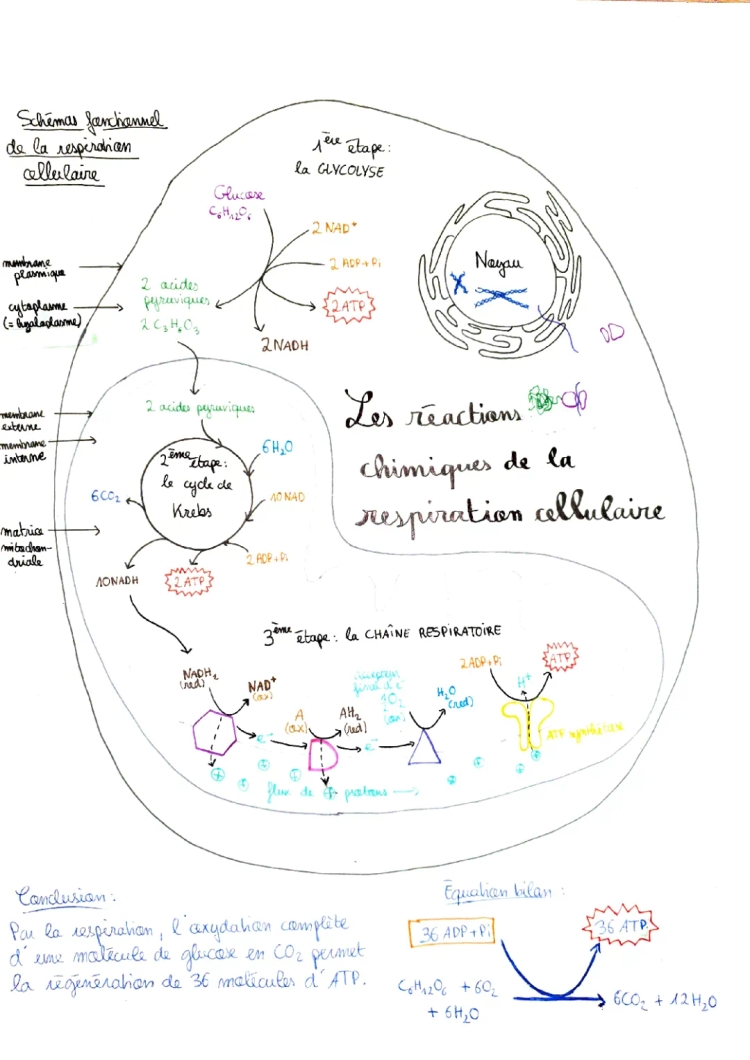 Schémas fonctionnel
de la respiration
cellulaire
1ère étape:
la GLYCOLYSE
Glucose
C₆H₁₂O₆
2 NAD⁺
2 ADP+Pi
2 ATP
2 NADH
2 acides
pyruviques
2 C₃H₆O₃
Noyau
membrane
plasmique
cytoplasme
(= hyaloplasme)
membrane
externe
membrane
interne
matrice
mitochon-
driale
Les réactions
chimiques de la
respiration cellulaire
2 acides pyruviques
2ème étape:
le cycle de
Krebs
6H₂O
10NAD
2 ADP+Pi
2 ATP
10NADH
6CO₂
3ème étape: la CHAÎNE RESPIRATOIRE
NADH₂
(red)
NAD⁺
(ox)
e⁻
A
(ox)
AH₂
(red)
e⁻
accepteur
final d'e⁻
O₂
(ox)
H₂O
(red)
2ADP+Pi
H⁺
ATP
ATP synthétase
flux de + protons
Conclusion:
Par la respiration, l'oxydation complète
d'une molécule de glucose en CO₂ permet
la régénération de 36 molécules d'ATP.
Équation bilan:
36 ADP+Pi
36 ATP
C₆H₁₂O₆ + 6O₂
+ 6H₂O
6CO₂ + 12H₂O